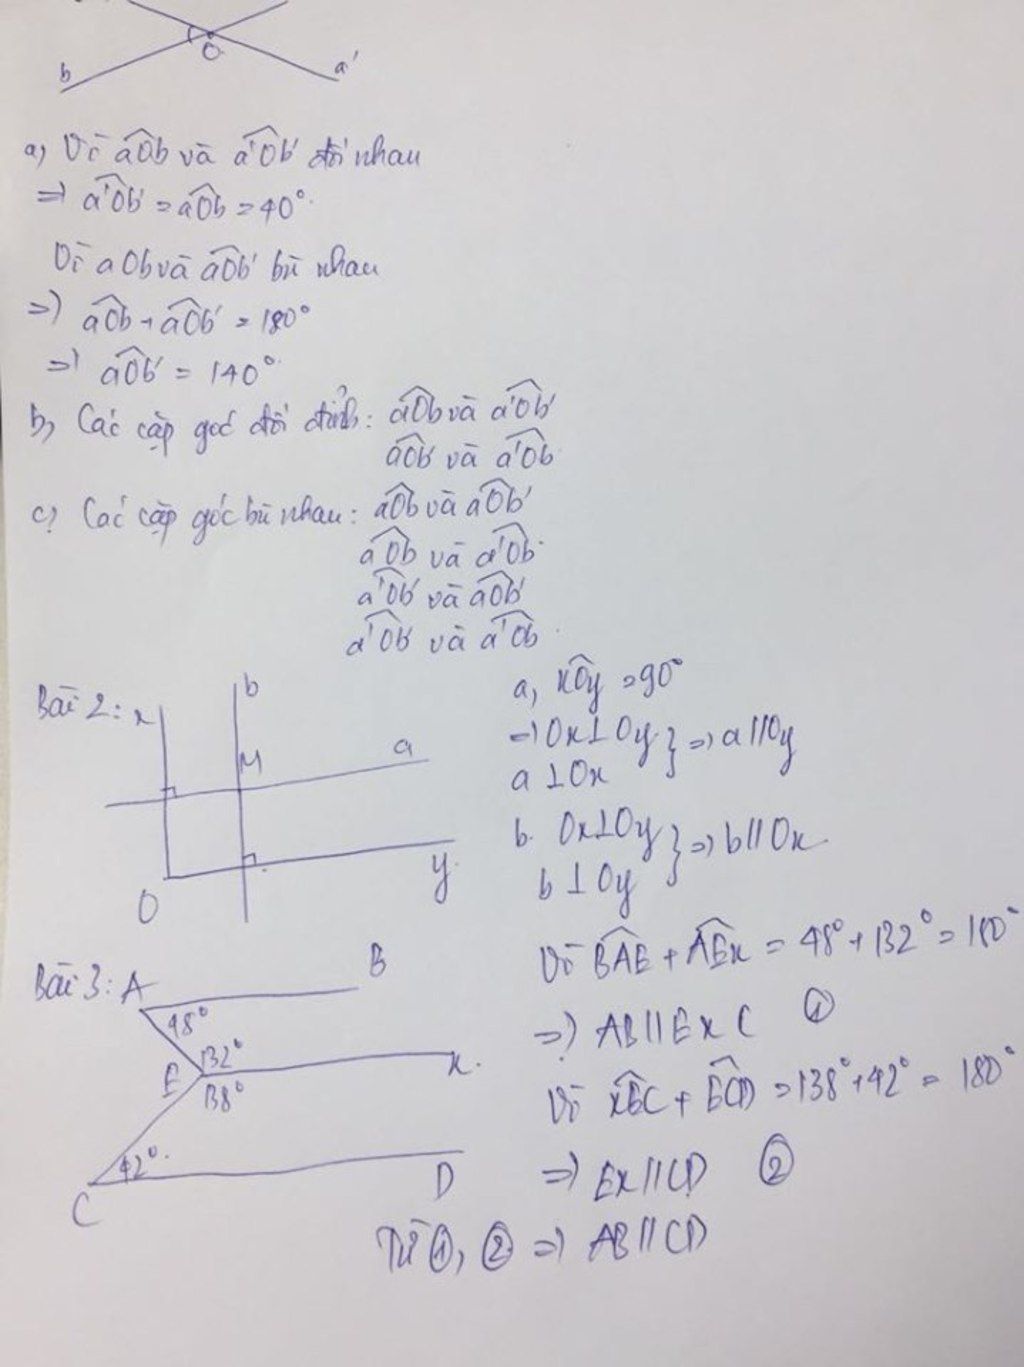 b
O
a'
a, Vì aOb và a'Ob' đối nhau
=> a'Ob' = aOb = 40°
Vì aOb và aOb' bù nhau
=> aOb + aOb' = 180°
=> aOb' = 140°
b, Các cặp góc đối đỉnh: aOb và a'Ob'
aOb' và a'Ob
c, Các cặp góc bù nhau: aOb và aOb'
aOb và a'Ob
a'Ob' và aOb'
a'Ob' và a'Ob
Bài 2: x
b
M
a
O
y
a, xOy = 90°
=> Ox⊥Oy } => a//Oy
a ⊥Ox
b. Ox⊥Oy } => b//Ox
b ⊥Oy
Bài 3: A
B
48°
E
132°
138°
x
42°
C
D
Vì BAE + AEx = 48° + 132° = 180°
=> AB//Ex C ①
Vì xEC + ECD = 138° + 42° = 180°
=> Ex//CD ②
Từ ①, ② => AB//CD